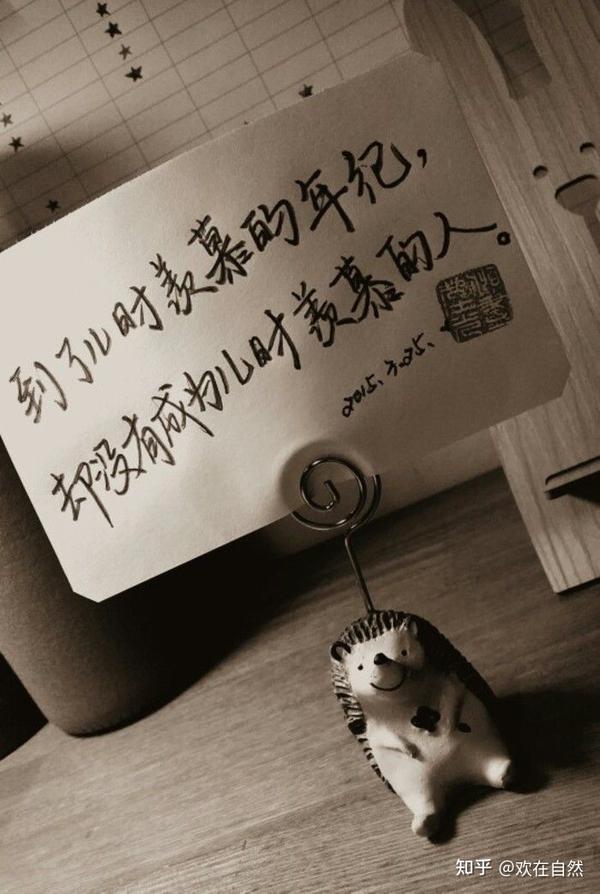 到了儿时羡慕的年纪，
却没有成为儿时羡慕的人。
2015.3.25.
知乎 @欢在自然